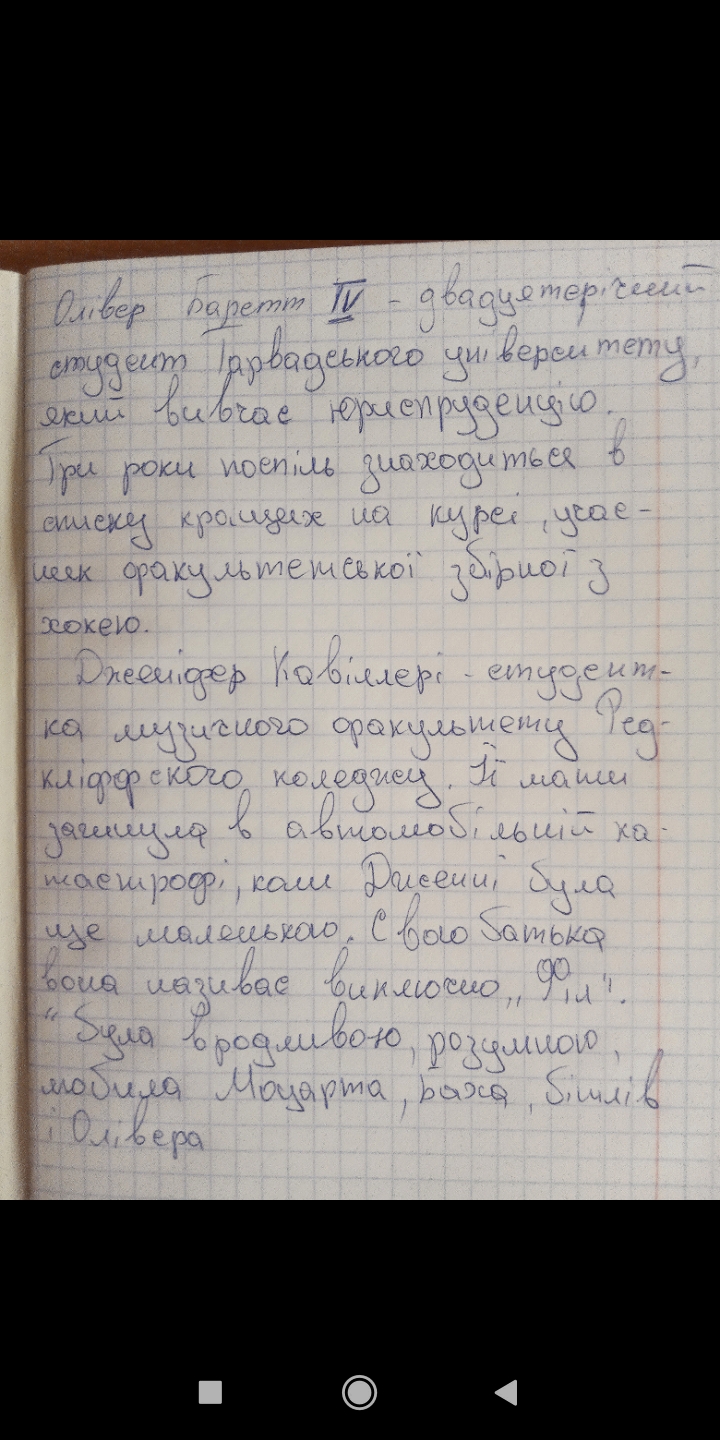 Олівер Баретт IV - двадцятирічний
студент Гарвадського університету,
який вивчає юриспруденцію.
Три роки поспіль знаходиться в
списку кращих на курсі, учас-
ник факультетської збірної з
хокею.
Дженіфер Кавіллері - студент-
ка музичного факультету Ред-
кліффского коледжу. Її мати
загинула в автомобільній ка-
тастрофі, коли Дженні була
ще маленькою. Свого батька
вона називає виключно „Філ".
"Була вродливою, розумною,
любила Моцарта, Баха, бітлів
і Олівера